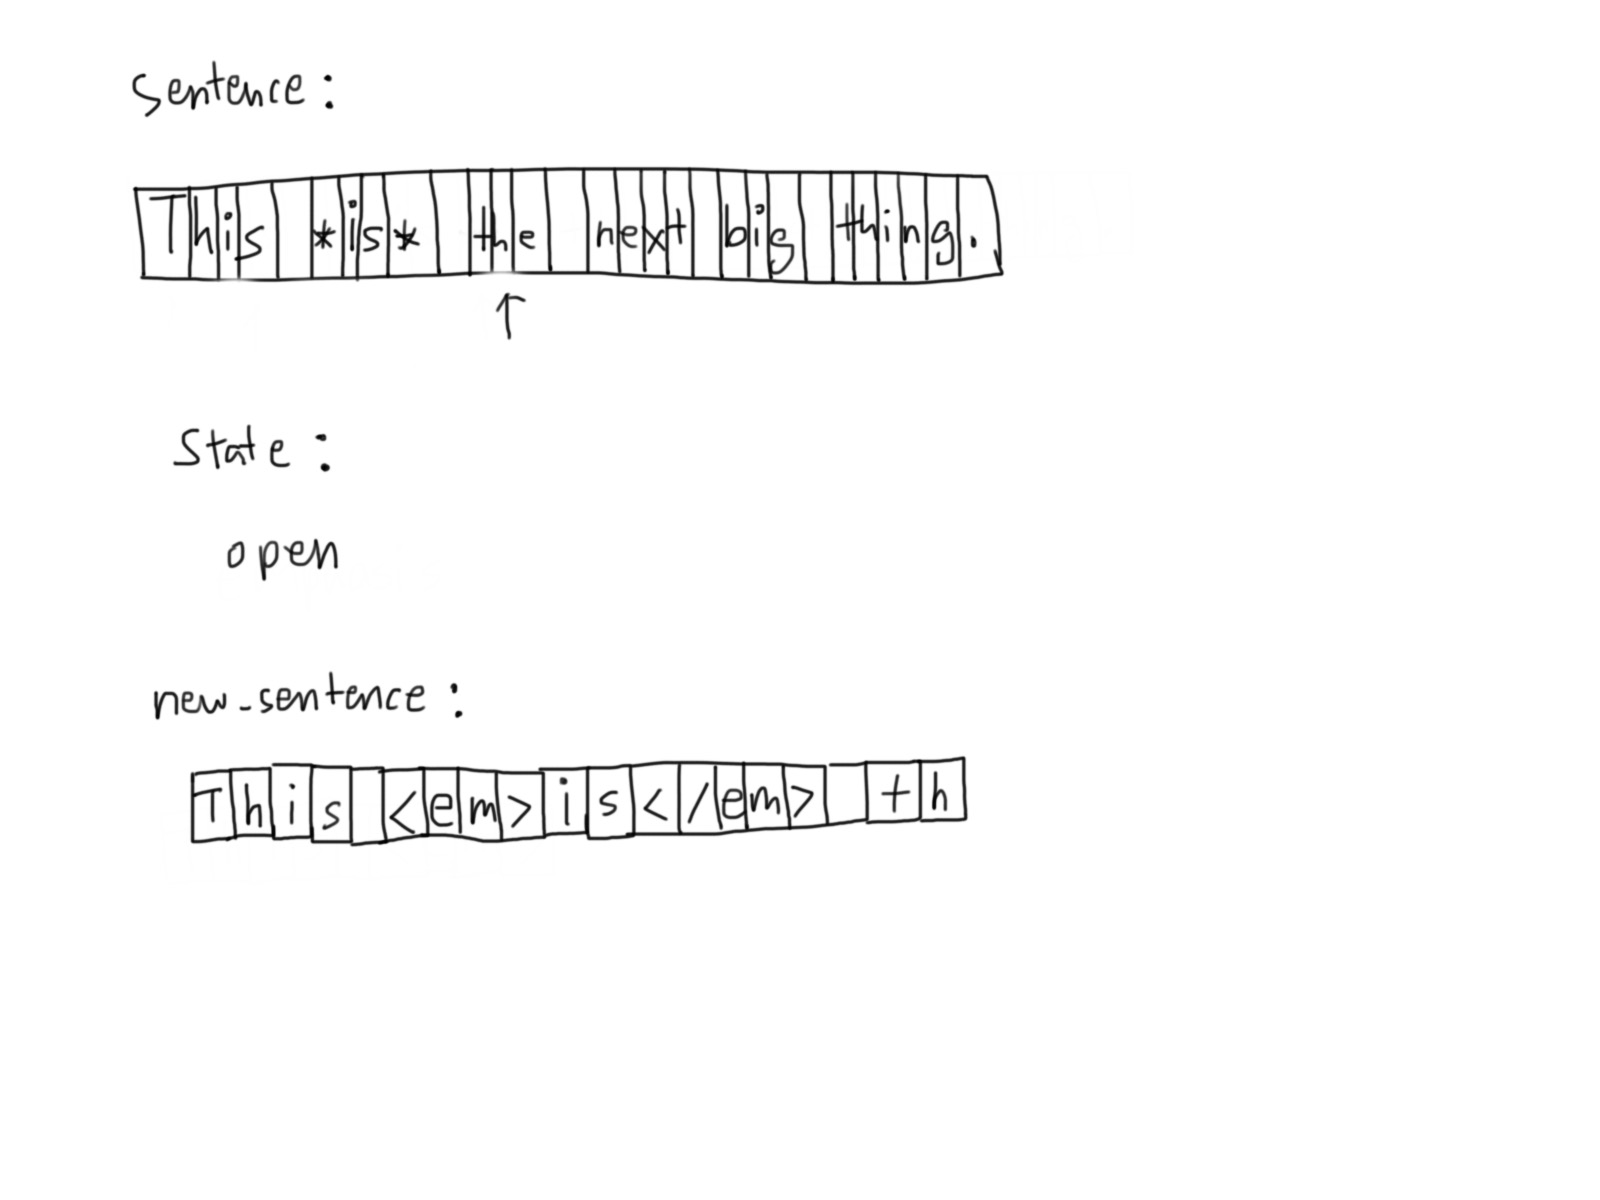 Sentence:
This *is* the next big thing.
↑
State:
open
new_sentence:
This <em>is</em> th